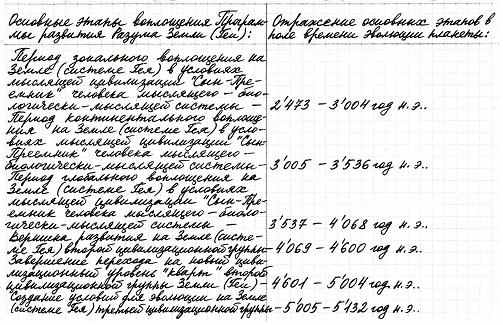 Основные этапы воплощения Програм-
мы развития Разума Земли (Геи):
Отражение основных этапов в
поле времени эволюции планеты:
Период зонального воплощения на
Земле (системе Гея) в условиях
мыслящей цивилизации "Сын-Пре-
емник" человека мыслящего – био-
логически-мыслящей системы –
2'473 – 3'004 год н.э..
Период континентального воплоще-
ния на Земле (системе Гея) в усло-
виях мыслящей цивилизации "Сын-
Преемник" человека мыслящего –
биологически-мыслящей системы –
3'005 – 3'536 год н.э..
Период глобального воплощения на
Земле (системе Гея) в условиях
мыслящей цивилизации "Сын-Пре-
емник человека мыслящего – биоло-
гически-мыслящей системы –
3'537 – 4'068 год н.э..
Вершина развития на Земле (систе-
ме Гея) второй цивилизационной группы–
4'069 – 4'600 год н.э..
Завершение перехода на новый циви-
лизационный уровень "кварт" второй
цивилизационной группы Земли (Геи) –
4'601 – 5'004 год н.э..
Создание условий для эволюции на Земле
(системе Гея) третьей цивилизационной группы
– 5'005 – 5'132 год н.э..